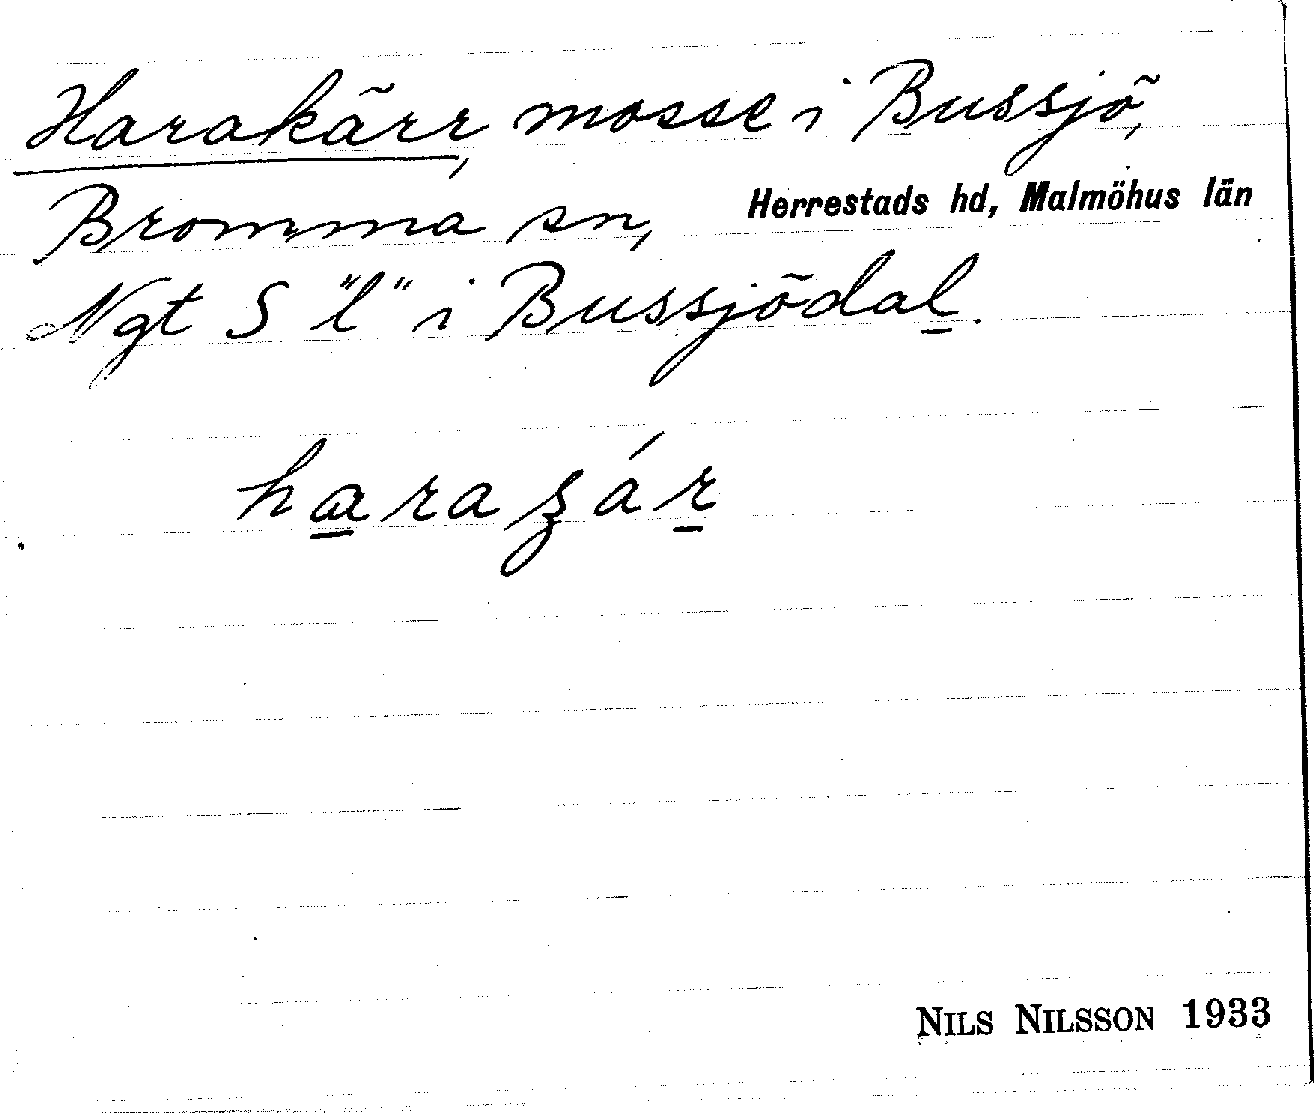 Harakärr, mosse i Bussjö,
Bromma sn, Herrestads hd, Malmöhus län
Ngt S "l" i Bussjödal.
haraʒár
NILS NILSSON 1933